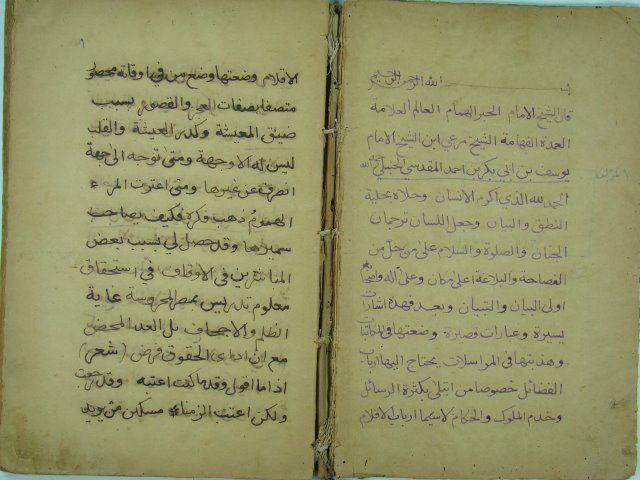 بسم الله الرحمن الرحيم
قال الشيخ الامام الحبر الهمام العالم العلامة
العمدة الفهامة الشيخ مرعي ابن الشيخ الامام
يوسف بن ابي بكر بن احمد المقدسي الحنبلي
الحمد لله الذي اكرم الانسان وحلاه بحلية
النطق والبيان وجعل اللسان ترجمان
الجنان والصلوة والسلام على من حل من
الفصاحة والبلاغة اعلى مكان وعلى اله واصحابه
اولى البيان والتبيان وبعد فهذه اشارات
يسيرة وعبارات قصيرة وضعتها في المكاتبات
وهذبتها في المراسلات يحتاج اليها ارباب
الفضائل خصوصا من ابتلي بكثرة الرسائل
وخدم الملوك والحكام لا سيما ارباب الاقلام
الاقلام وضعتها وضع من في اوقاته محصور
متصفا بصفات العجز والقصور بسبب
ضيق المعيشة وكدر العيشة والقلب
ليس له الا وجهة ومتى توجه الى جهة
انصرف عن غيرها ومتى اعترت المرء
الهموم ذهب فكره فكيف بصاحب
وقد حصل لي بسبب بعض
المباشرين في الاوقاف في استحقاق
معلوم تدريس بمصر المحروسة غاية
الظلم والاجحاف بل العدا المحض
مع ان اداء الحقوق فرض (شعر)
اذا ما اقول وقد ما كنت اعتبه وقد
ولكن اعتب الزمناء مسكين من يريد